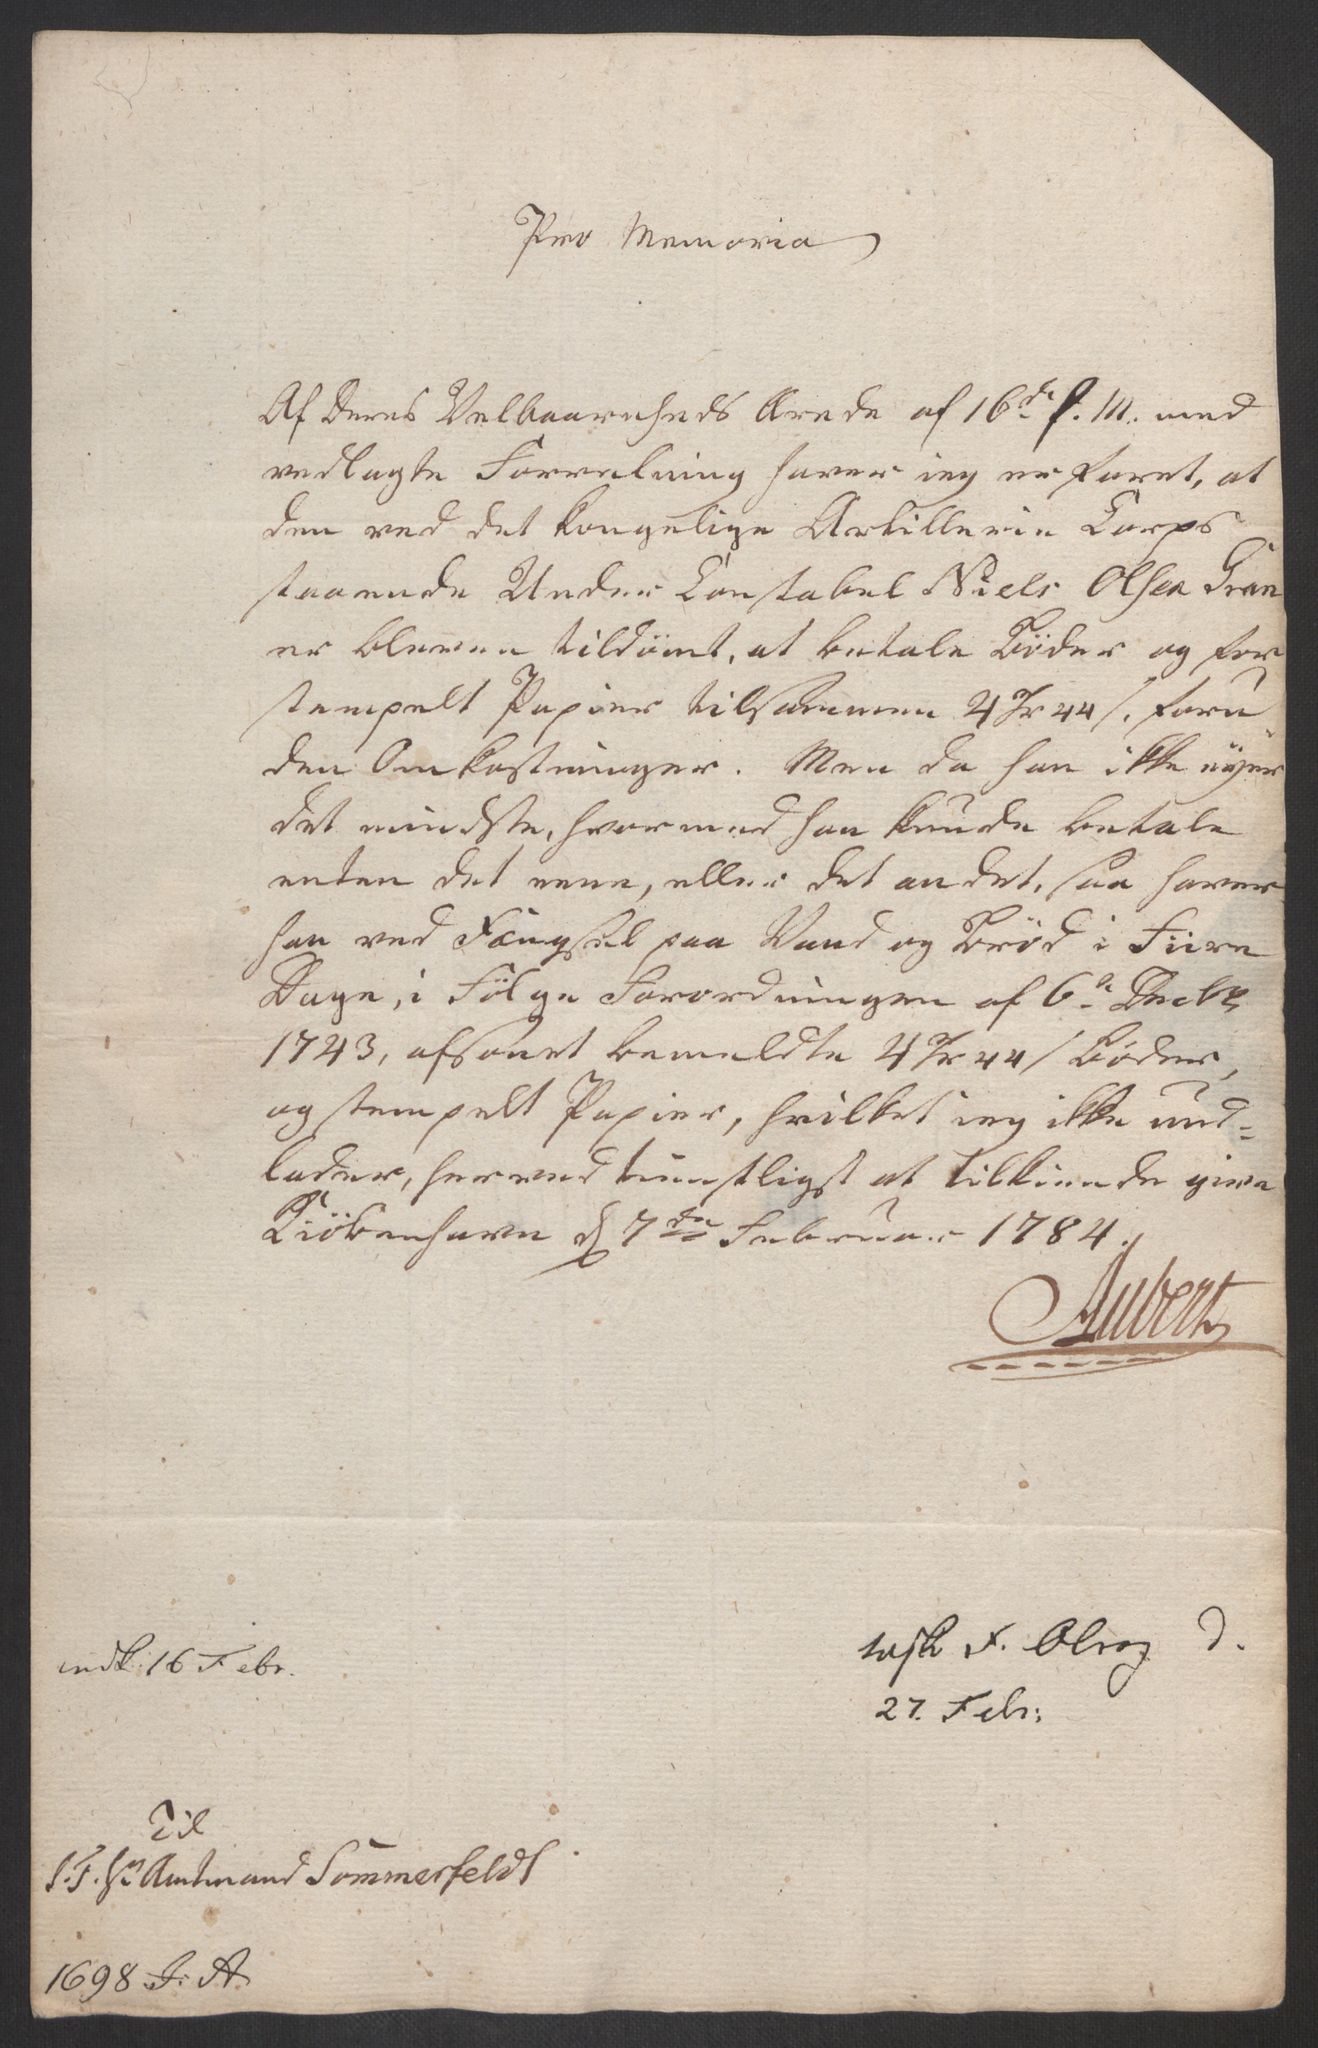 Pro Memoria
Af Deres Velbaarenheds Ærede af 16de f. M. med
vedlagte Forretning haver ieg erfaret, at
den ved det kongelige Artillerie Corps
staaende Under Constabel Niels Olsen Gran
er bleven tildömt, at betale Böder og for
stempelt Papier tilsammen 4 Rdr 44 s. foru
den Omkostninger. Men da han ikke ejer
det mindste, hvormed han kunde betale
enten det eene, eller det andet, saa haver
han ved Fængsel paa Vand og Bröd i Fiire
Dage, i Fölge Forordningen af 6te Decbr
1743, afsonet bemeldte 4 Rdr 44 s Böder,
og stempelt Papier, hvilket ieg ikke und=
lader, herved tienstligst at tilkiende give
Kiöbenhavn d 7de Februar 1784.
Aubert
indk: 16 Febr.
F. d.
27. Febr:
Til
S. T. Hr Amtmand Sommerfeldt
1698 J. A